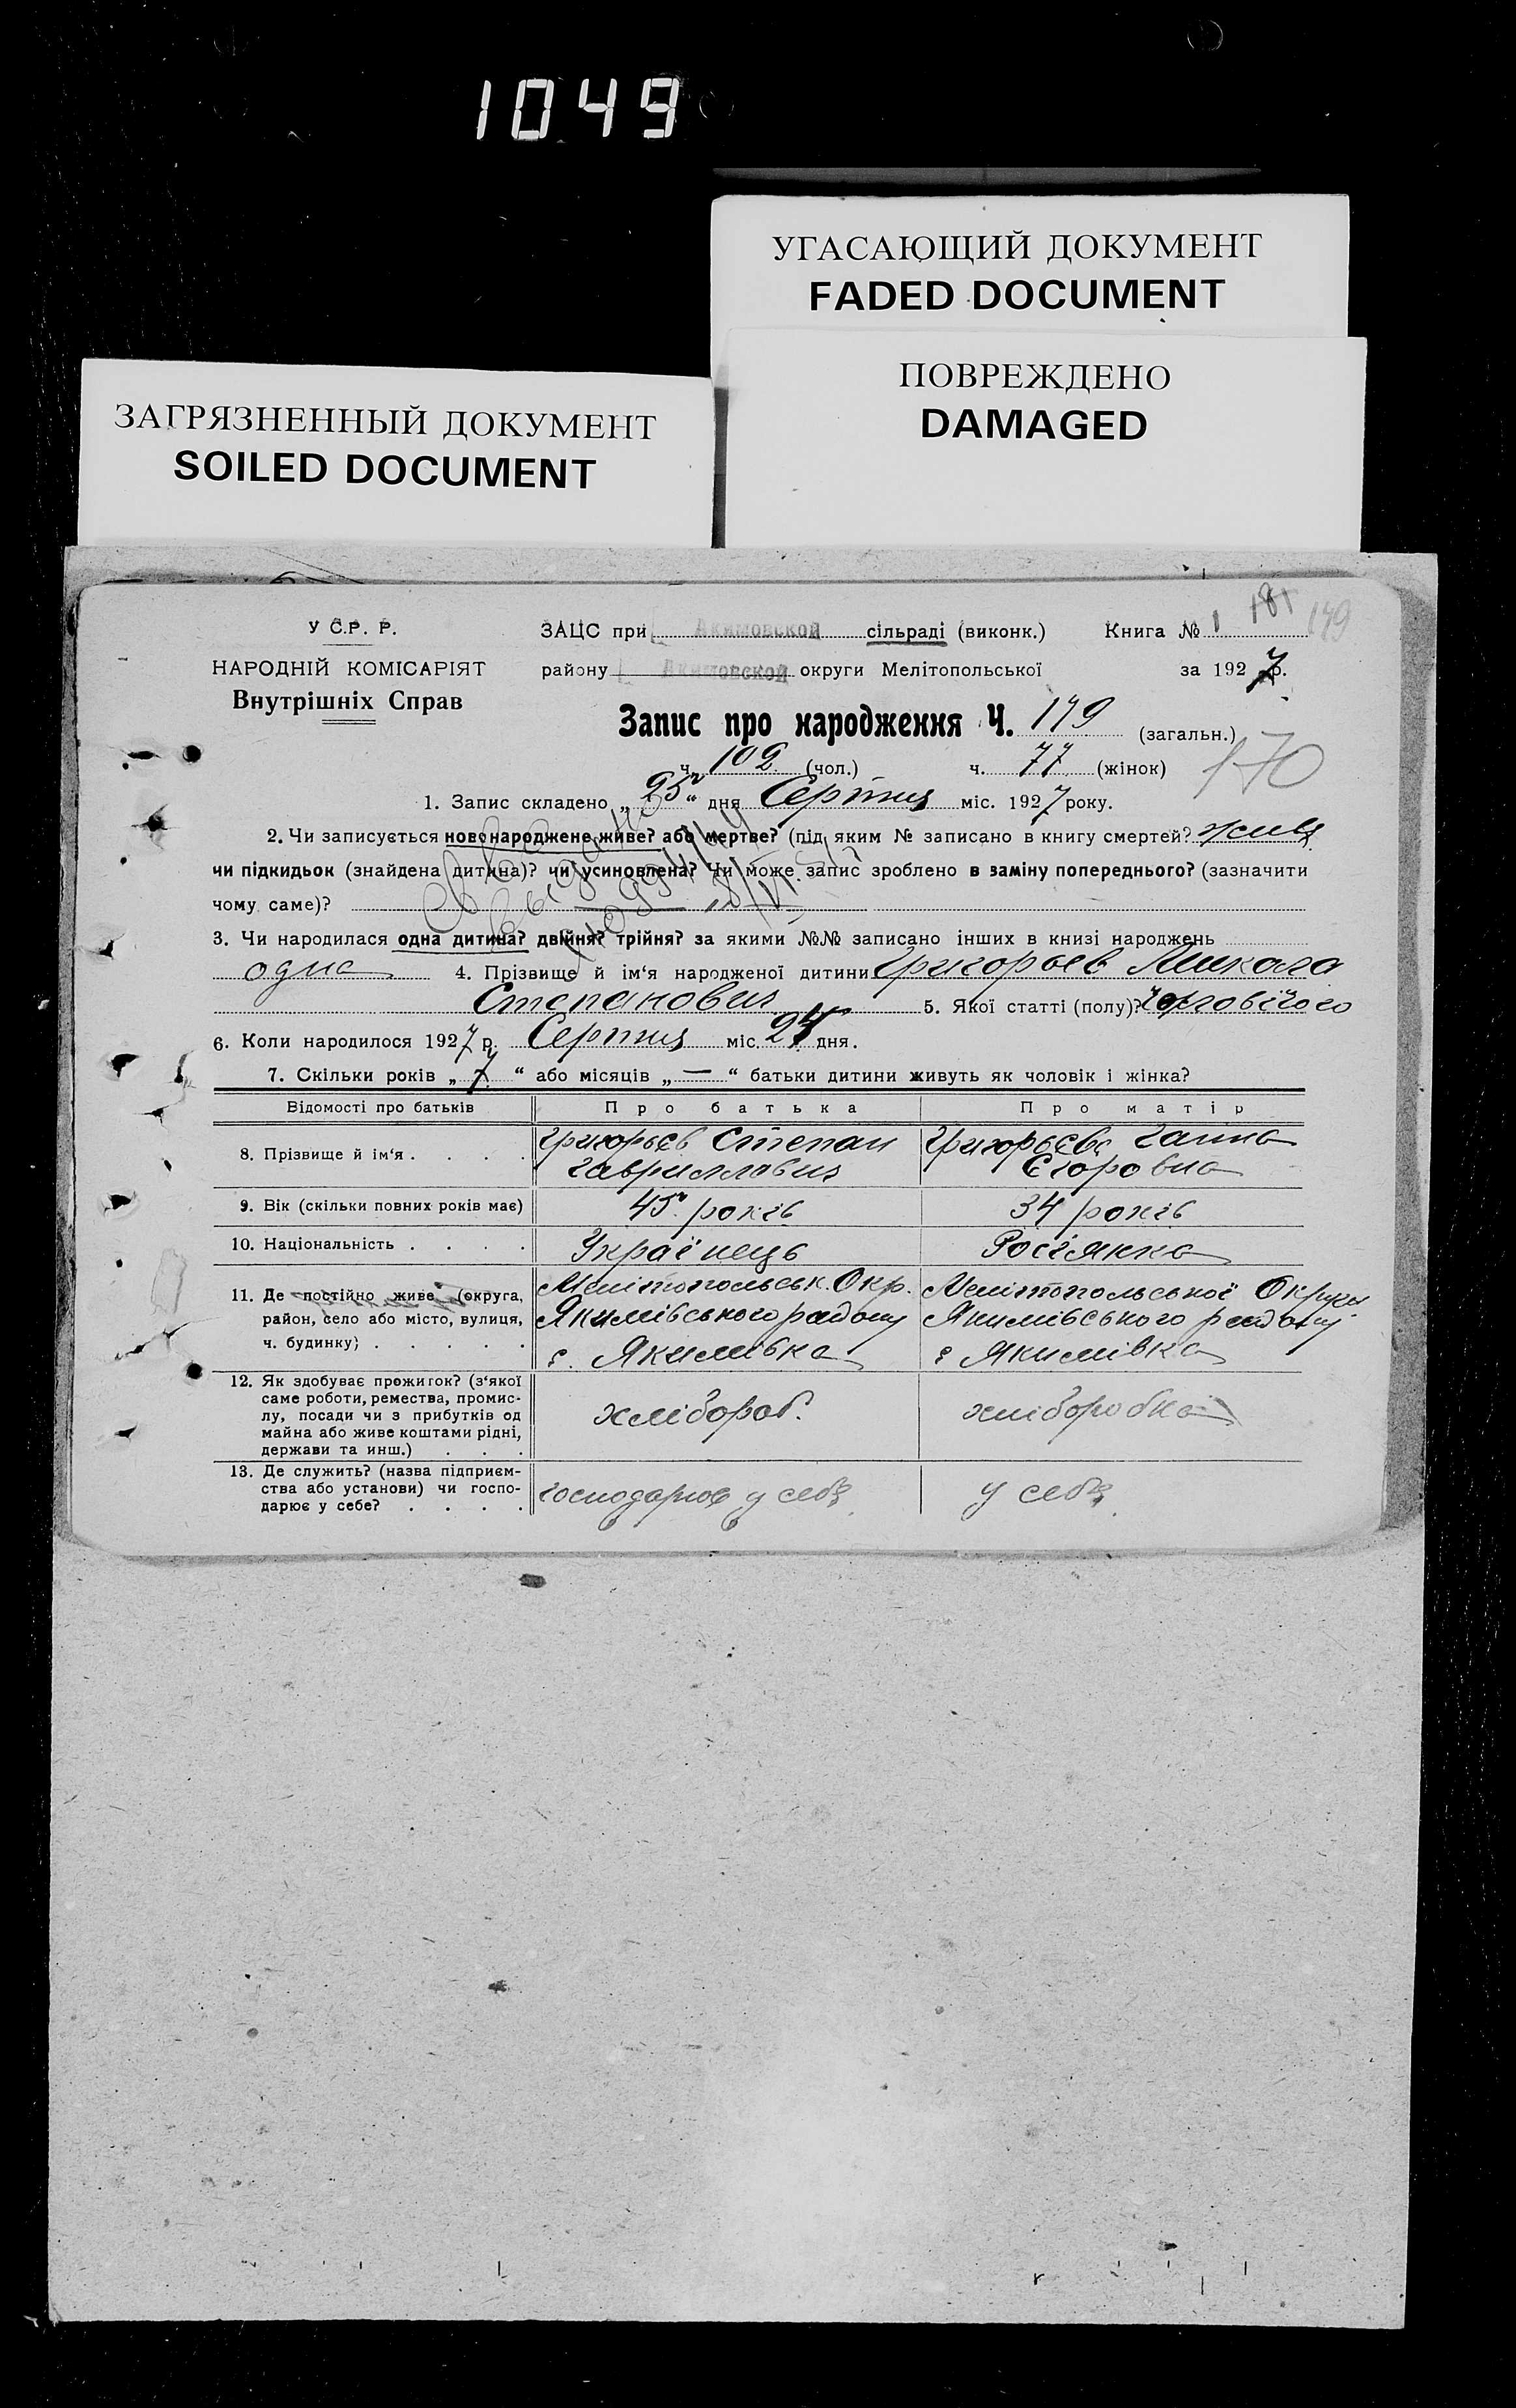 1049
УГАСАЮЩИЙ ДОКУМЕНТ
FADED DOCUMENT
ПОВРЕЖДЕНО
DAMAGED
ЗАГРЯЗНЕННЫЙ ДОКУМЕНТ
SOILED DOCUMENT
181 149
У С.Р. Р. ЗАЦС при Акимовской сільраді (виконк.) Книга № 1
НАРОДНІЙ КОМІСАРІЯТ району Акимовской округи Мелітопольської за 1927 р.
Внутрішніх Справ
Запис про народження Ч. 179 (загальн.)
ч. 102 (чол.) ч. 77 (жінок) 170
1. Запис складено „25“ дня Серпня міс. 1927 року.
2. Чи записується новонароджене живе? або мертве? (під яким № записано в книгу смертей? живе
чи підкидьок (знайдена дитина)? чи усиновлена? Чи може запис зроблено в заміну попереднього? (зазначити
чому саме)?
3. Чи народилася одна дитина? двійня? трійня? за якими №№ записано інших в книзі народжень
одна 4. Прізвище й ім‘я народженої дитини Григорьєв Микола
Степанович 5. Якої статті (полу)? Чоловічого
6. Коли народилося 1927 р. Серпня міс. 24 дня.
7. Скільки років „7“ або місяців „—“ батьки дитини живуть як чоловік і жінка?
Відомості про батьків Про батька Про матір
8. Прізвище й ім‘я . . . . Григорьєв Степан Гаврилович Григорьєва Ганна Єгоровна
9. Вік (скільки повних років має) 45 років 34 років
10. Національність . . . . Українець Росіянка
11. Де постійно живе (округа, Мелітопольськ. Окр. Мелітопольської Округи
район, село або місто, вулиця, Якимівського району Якимівського району
ч. будинку) . . . . . с. Якимівка с Якимівка
12. Як здобуває прожиток? (з‘якої
саме роботи, ремества, промис-
лу, посади чи з прибутків од хлібороб. хліборобка
майна або живе коштами рідні,
держави та инш.) . . .
13. Де служить? (назва підприєм-
ства або установи) чи госпо- господарює у себе у себе
дарює у себе? . . . .